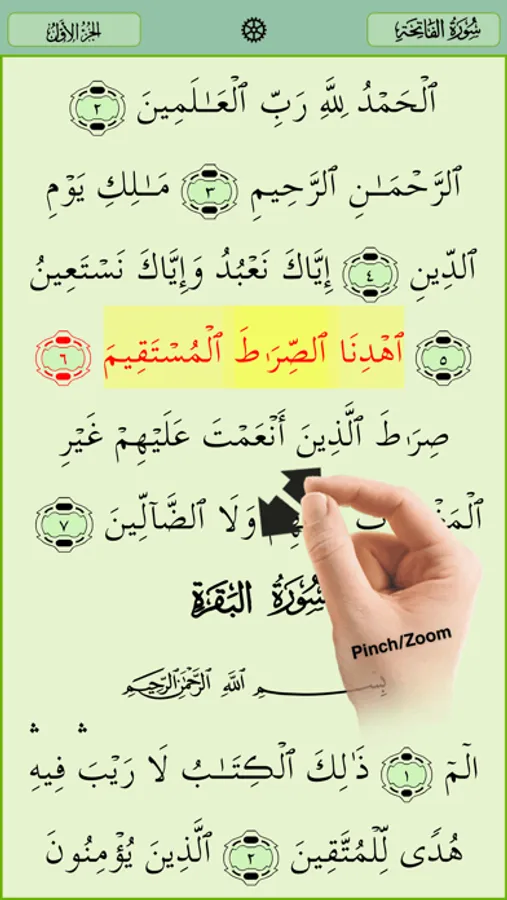 سُورَةُ الفَاتِحَةِ
الجُزْءُ الأَوَّلُ
ٱلْحَمْدُ لِلَّهِ رَبِّ ٱلْعَـٰلَمِينَ ٢
ٱلرَّحْمَـٰنِ ٱلرَّحِيمِ ٣ مَـٰلِكِ يَوْمِ
ٱلدِّينِ ٤ إِيَّاكَ نَعْبُدُ وَإِيَّاكَ نَسْتَعِينُ
٥ ٱهْدِنَا ٱلصِّرَٰطَ ٱلْمُسْتَقِيمَ ٦
صِرَٰطَ ٱلَّذِينَ أَنْعَمْتَ عَلَيْهِمْ غَيْرِ
وَلَا ٱلضَّآلِّينَ ٧
سُورَةُ البَقَرَةِ
Pinch/Zoom
بِسْمِ ٱللَّهِ ٱلرَّحْمَٰنِ ٱلرَّحِيمِ
الٓمٓ ١ ذَٰلِكَ ٱلْكِتَـٰبُ لَا رَيْبَ ۛ فِيهِ ۛ
هُدًى لِّلْمُتَّقِينَ ٢ ٱلَّذِينَ يُؤْمِنُونَ